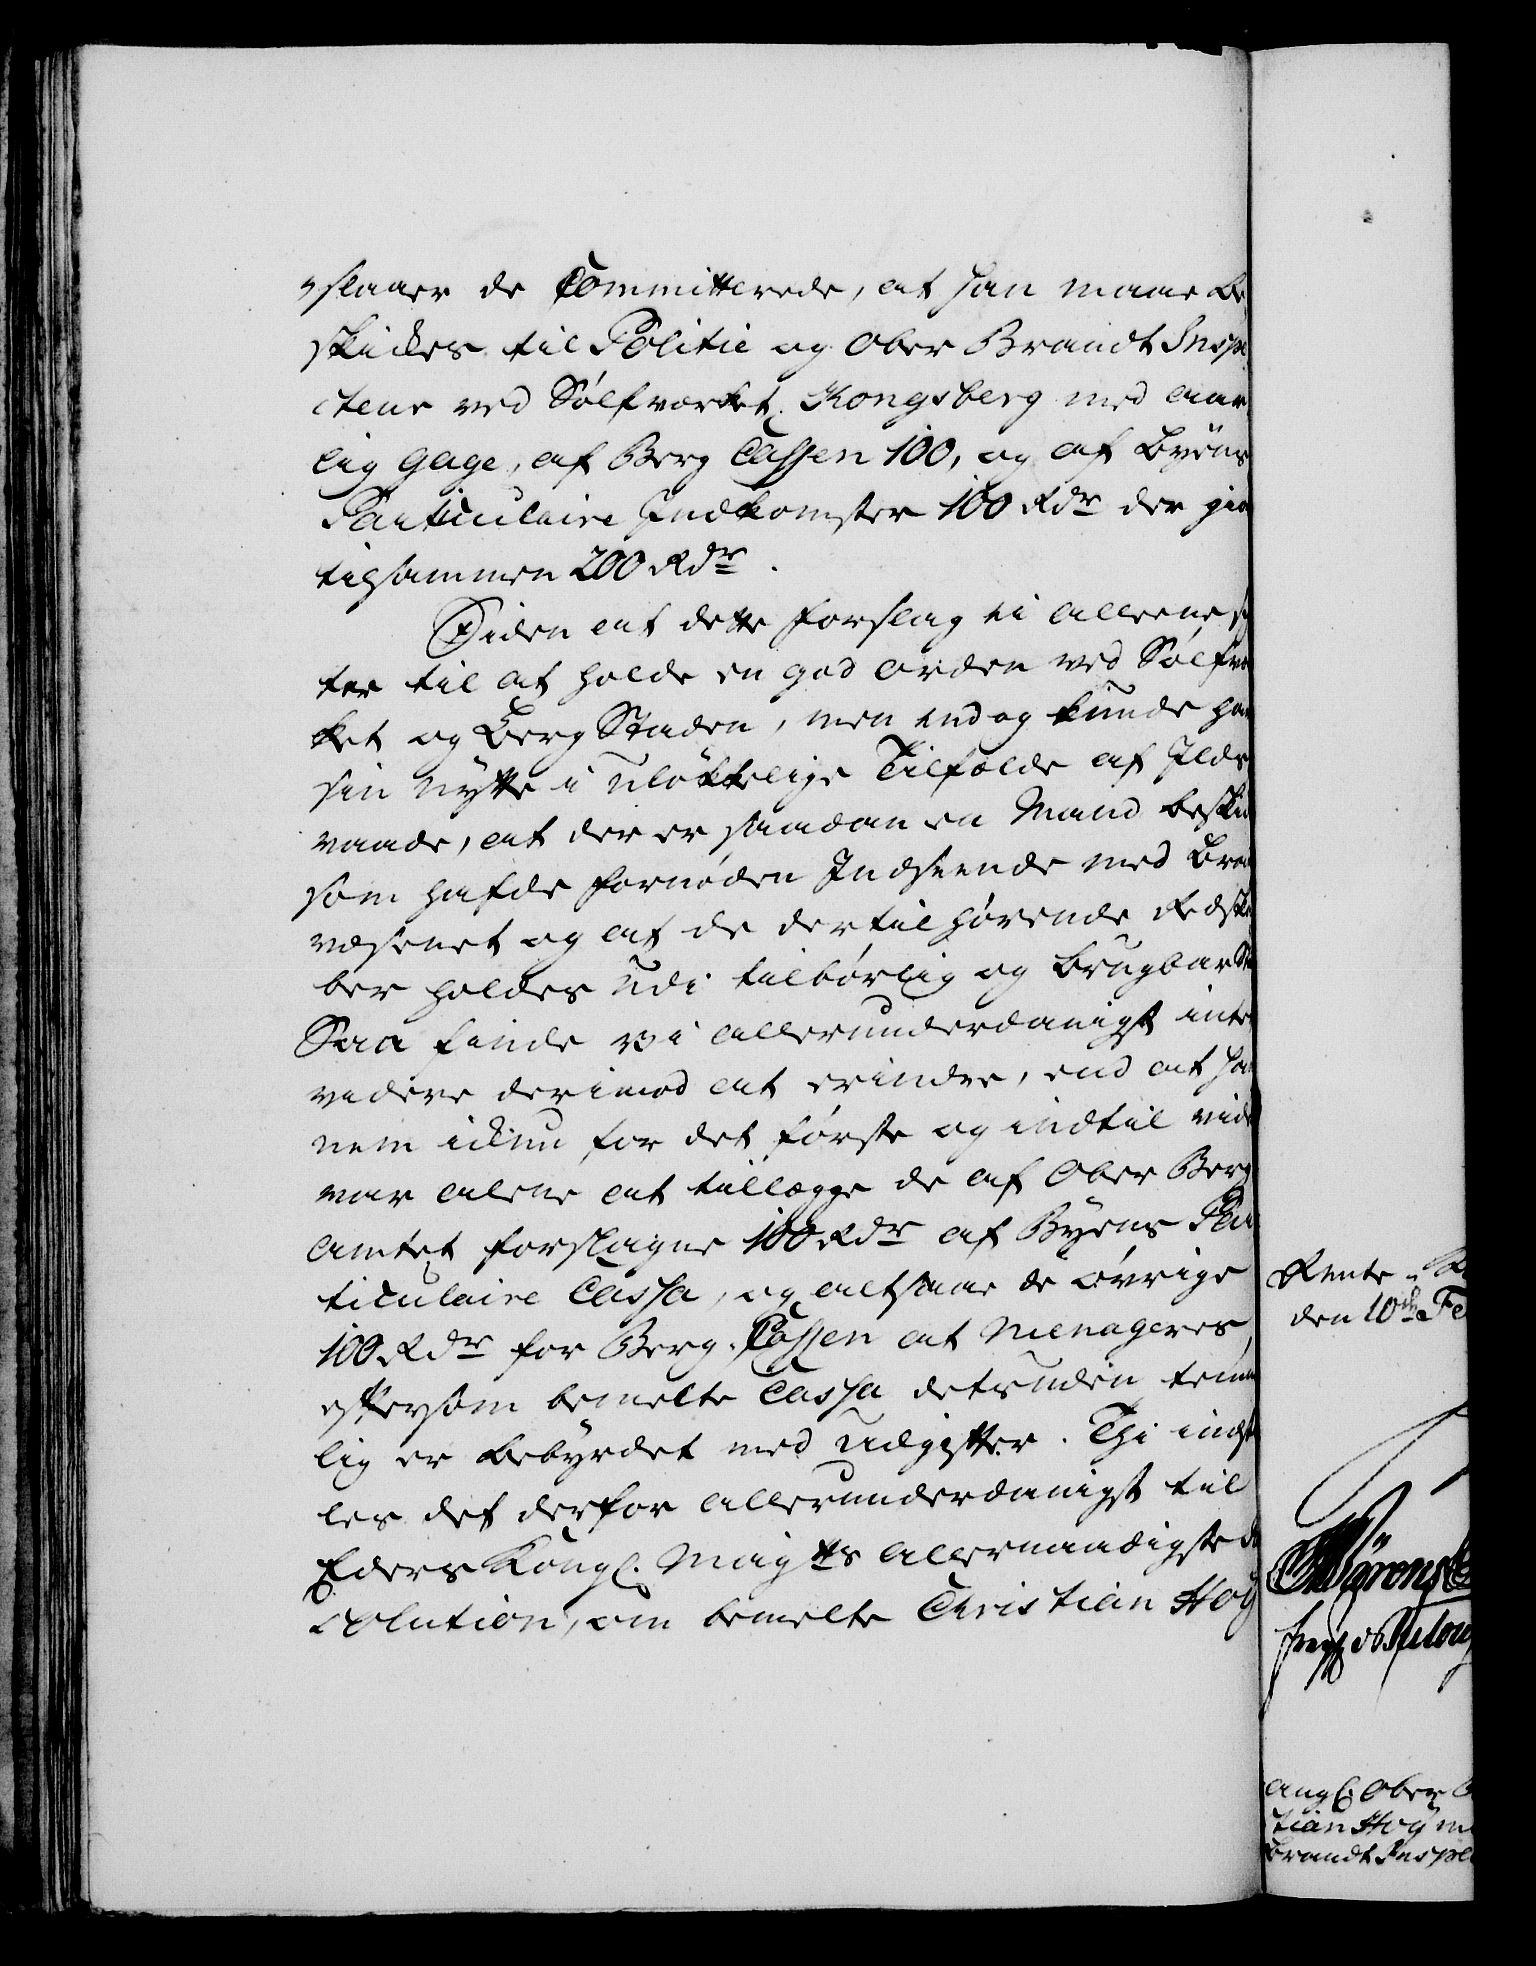 slaaer de Committerede, at han maae be
skickes til Politie og Ober Brandt Inspe
cteur ved Sølfverket Kongsberg med aar
lig Gage, af Berg Cassen 100, og af Byens
Particulaire Indkomster 100 Rdr der giør
tilsammen 200 Rdr.
Siden at dette forslag ei alleene sig
ter til at holde en god orden ved Sølfver
ket og Berg Staden, men endog kunde have
sin nytte i ulökkelige Tilfælde af Ilds
vaade, at der er saadan en Mand beskik
som hafde fornøden Indseende med Bran
væsenet og at de dertil hørende Redska
ber holdes udi tilbørlig og brugbar Sta
Saa finde vi allerunderdanigst intet
videre derimod at erindre, end at han
nem ickun for det første og indtil vide
var alene at tillægge de af Ober Berg
Amtet forslagne 100 Rdr af Byens Par
ticulaire Cassa, og altsaae de øvrige
100 Rdr for Berg-Cassen at menageres,
eftersom bemelte Cassa desuden temme
lig er bebyrdet med udgifter. Thi indstil
les det derfor allerunderdanigst til
Eders Kongl. Mayts allernaadigste Re
solution, om bemelte Christian Høy
Rente-
den 10de Fe
ang. Ober
tian Høy
Brandt Inspe